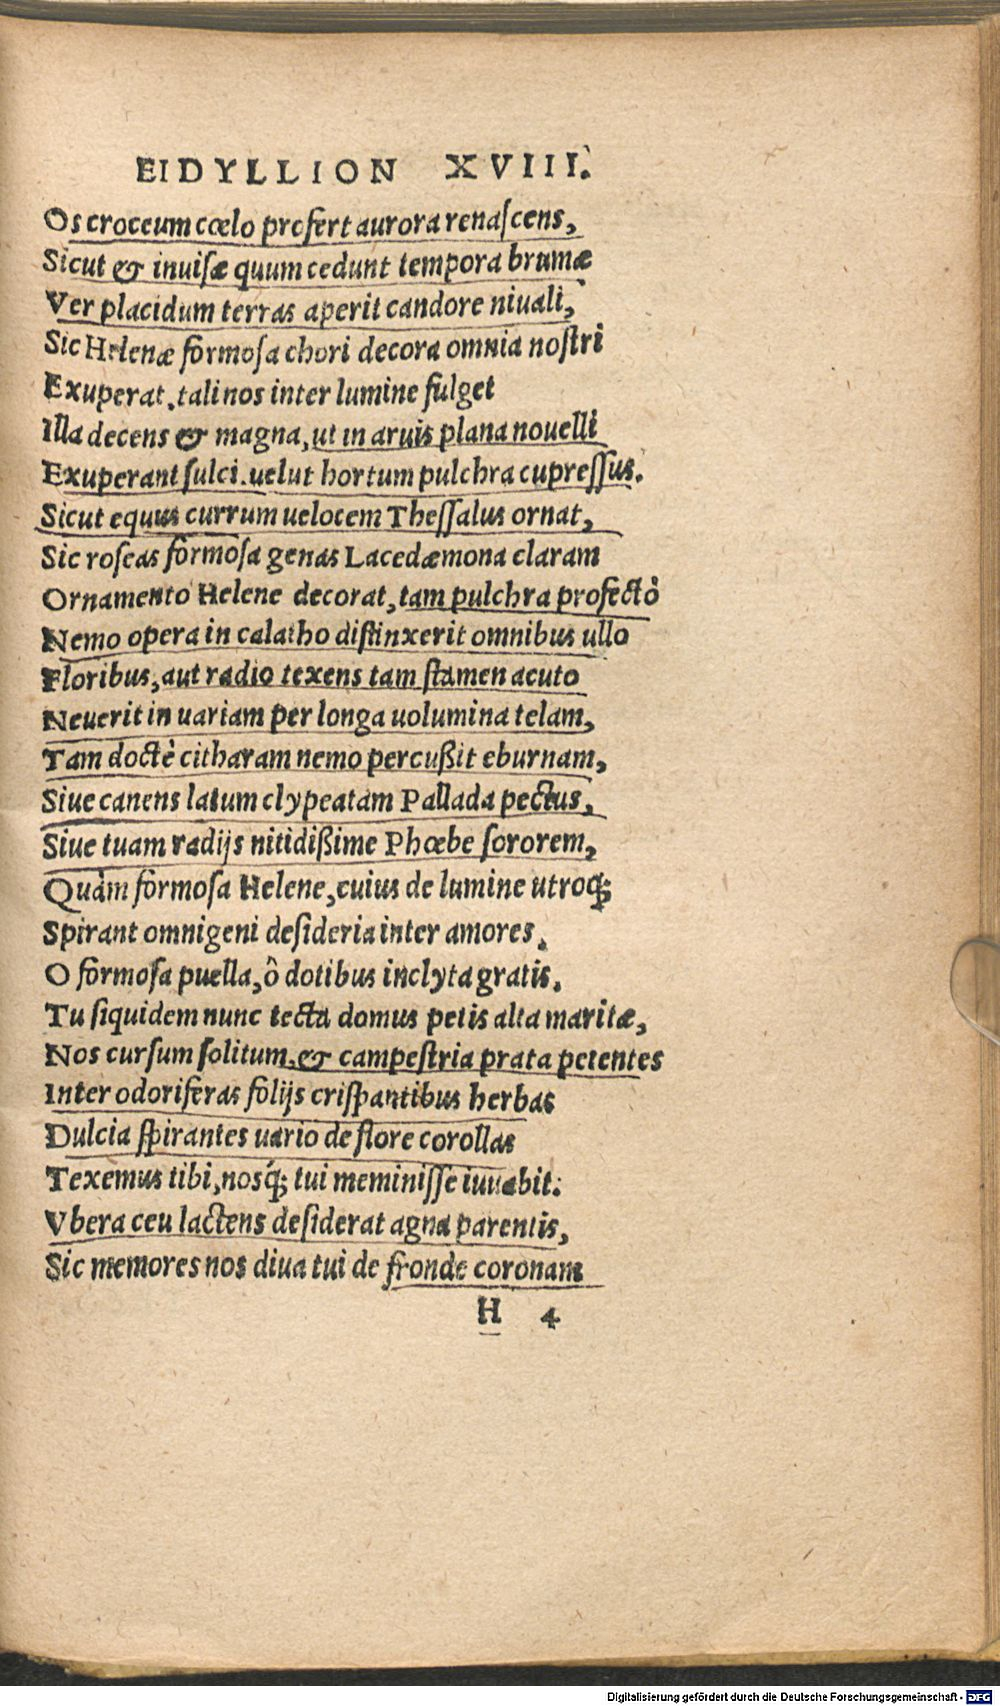 EIDYLLION XVIII.
Os croceum cœlo profert aurora renaſcens,
Sicut & inuiſæ quum cedunt tempora brumæ
Ver placidum terras aperit candore niuali,
Sic Helenæ formoſa chori decora omnia noſtri
Exuperat, tali nos inter lumine fulget
Illa decens & magna, ut in aruis plana nouelli
Exuperant ſulci, uelut hortum pulchra cupreſſus.
Sicut equus currum uelocem Theſſalus ornat,
Sic roſeas formoſa genas Lacedæmona claram
Ornamento Helene decorat, tam pulchra profectò
Nemo opera in calatho diſtinxerit omnibus ullo
Floribus, aut radio texens tam ſtamen acuto
Neuerit in uariam per longa uolumina telam,
Tam doctè citharam nemo percußit eburnam,
Siue canens latum clypeatam Pallada pectus,
Siue tuam radijs nitidißime Phœbe ſororem,
Quàm formoſa Helene, cuius de lumine utroq́;
Spirant omnigeni deſideria inter amores.
O formoſa puella, ô dotibus inclyta gratis,
Tu ſiquidem nunc tecta domus petis alta maritæ,
Nos curſum ſolitum, & campeſtria prata petentes
Inter odoriferas folijs criſpantibus herbas
Dulcia ſpirantes uario de flore corollas
Texemus tibi, nosq́; tui meminiſſe iuuabit:
Vbera ceu lactens deſiderat agna parentis,
Sic memores nos diua tui de fronde coronam
H 4
Digitalisierung gefördert durch die Deutsche Forschungsgemeinschaft - DFG